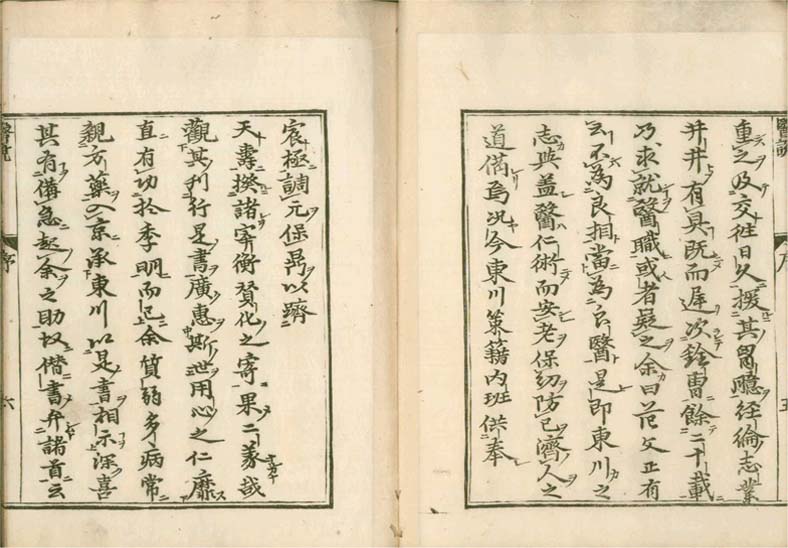 醫說
序
五
重之及交徃日久援其胷臆経綸志業
井井有具既而遅次銓曹餘二十載
乃求就醫職或者疑之余曰范文正有
云不為良相當為良醫是即東川之
志與盖醫仁術而安老保幼防已濟人之
道備焉况今東川策籍内班供奉
宸極調元保昜以躋
天壽揆諸宰衡賛化之寄果二義哉
觀其刋行是書廣惠斯世用心之仁靡
直有功於季明而已余質弱多病常
親方藥入京承東川以是書相示深喜
其有備急起余之助故僭書弁諸首云
醫說
序
六